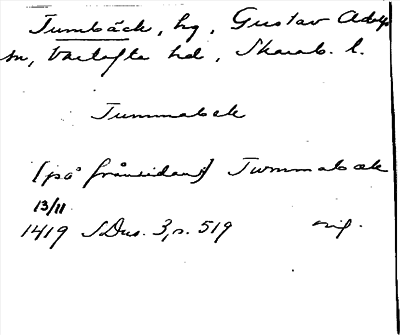 Tumbäck, hg, Gustav Adolfs
sn, Vartofta hd, Skarab. l.
Tummabek
[på frånsidan] Twmmabæk
13/11
1419 SDns. 3, s. 519 orig.